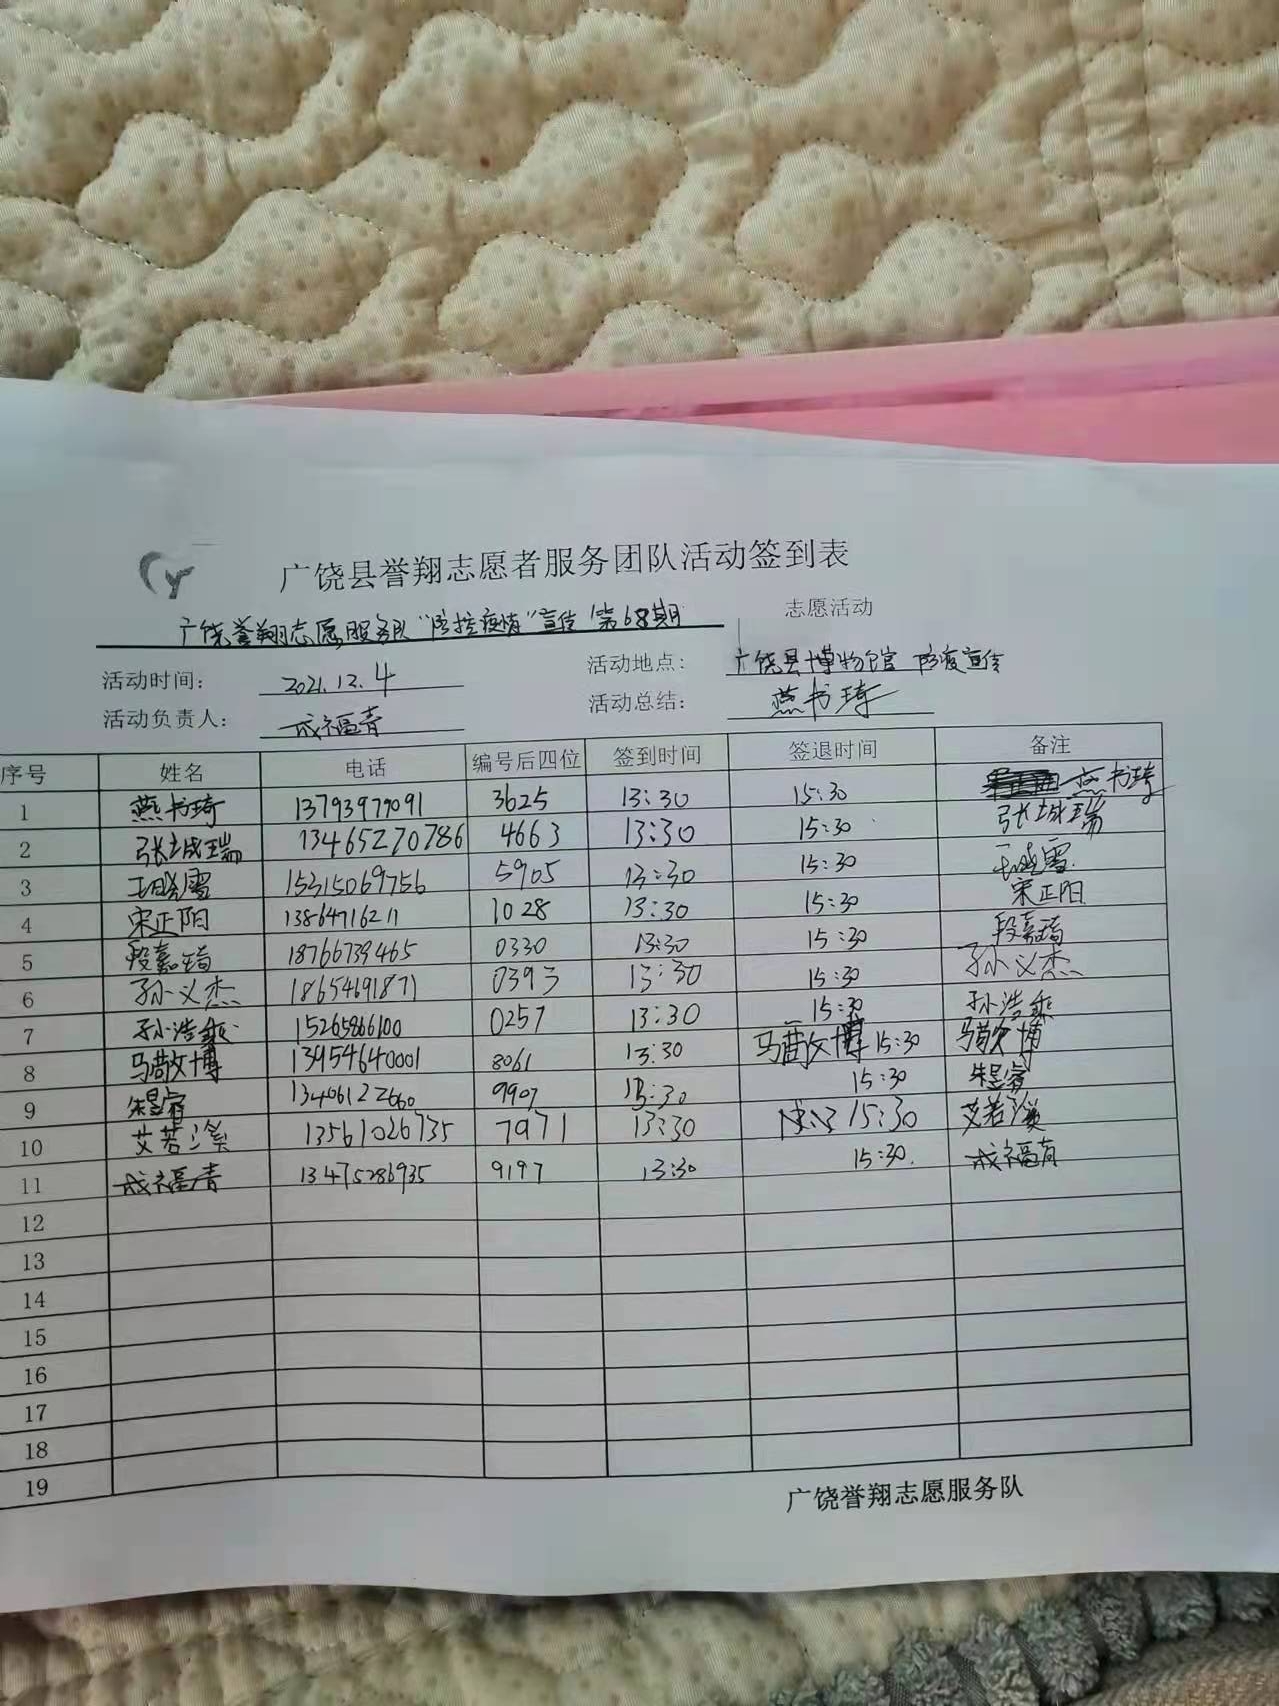 广饶县誉翔志愿者服务团队活动签到表
广饶誉翔志愿服务队"防控疫情"宣传 第68期 志愿活动
活动时间： 2021.12.4 活动地点： 广饶县博物馆 防疫宣传
活动负责人： 成福青 活动总结： 燕书琦
序号 姓名 电话 编号后四位 签到时间 签退时间 备注
1 燕书琦 13793979091 3625 13:30 15:30 燕书琦
2 张城瑞 13465270786 4663 13:30 15:30 张城瑞
3 王晓雪 15315069756 5905 13:30 15:30 王晓雪
4 宋正阳 13864716211 1028 13:30 15:30 宋正阳
5 段嘉琦 18766739465 0330 13:30 15:30 段嘉琦
6 孙义杰 18654691871 0393 13:30 15:30 孙义杰
7 孙浩 15265866100 0257 13:30 15:30 孙浩
8 马敬博 13954640001 8061 13:30 马敬博 15:30 马敬博
9 朱昱睿 13406122660 9907 13:30 15:30 朱昱睿
10 艾若溪 13561026735 7971 13:30 15:30 艾若溪
11 成福青 13475286935 9197 13:30 15:30. 成福青
12
13
14
15
16
17
18
19
广饶誉翔志愿服务队